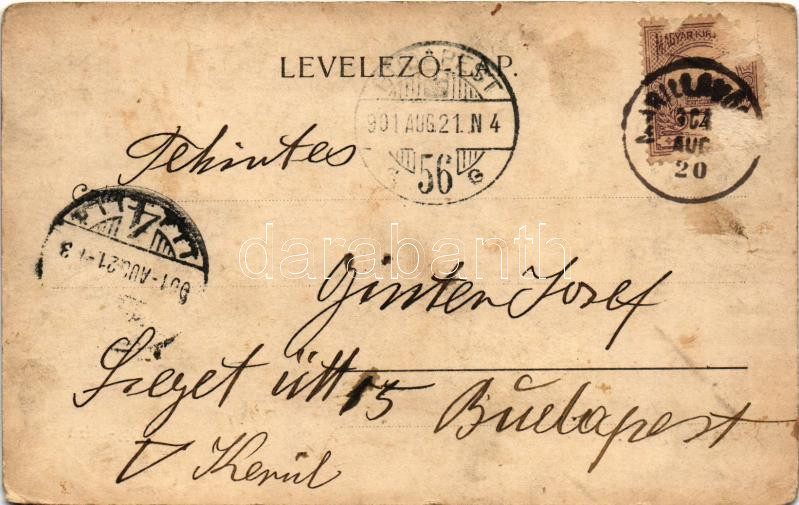 LEVELEZŐ-LAP.
MAGYAR KIR
901 AUG. 21. N 4
56
G
AUG
20
Tekintes
4
901-AUG.21
3
darabanth
Günter Josef
Sziget útt 15 Budapest
V Kerül